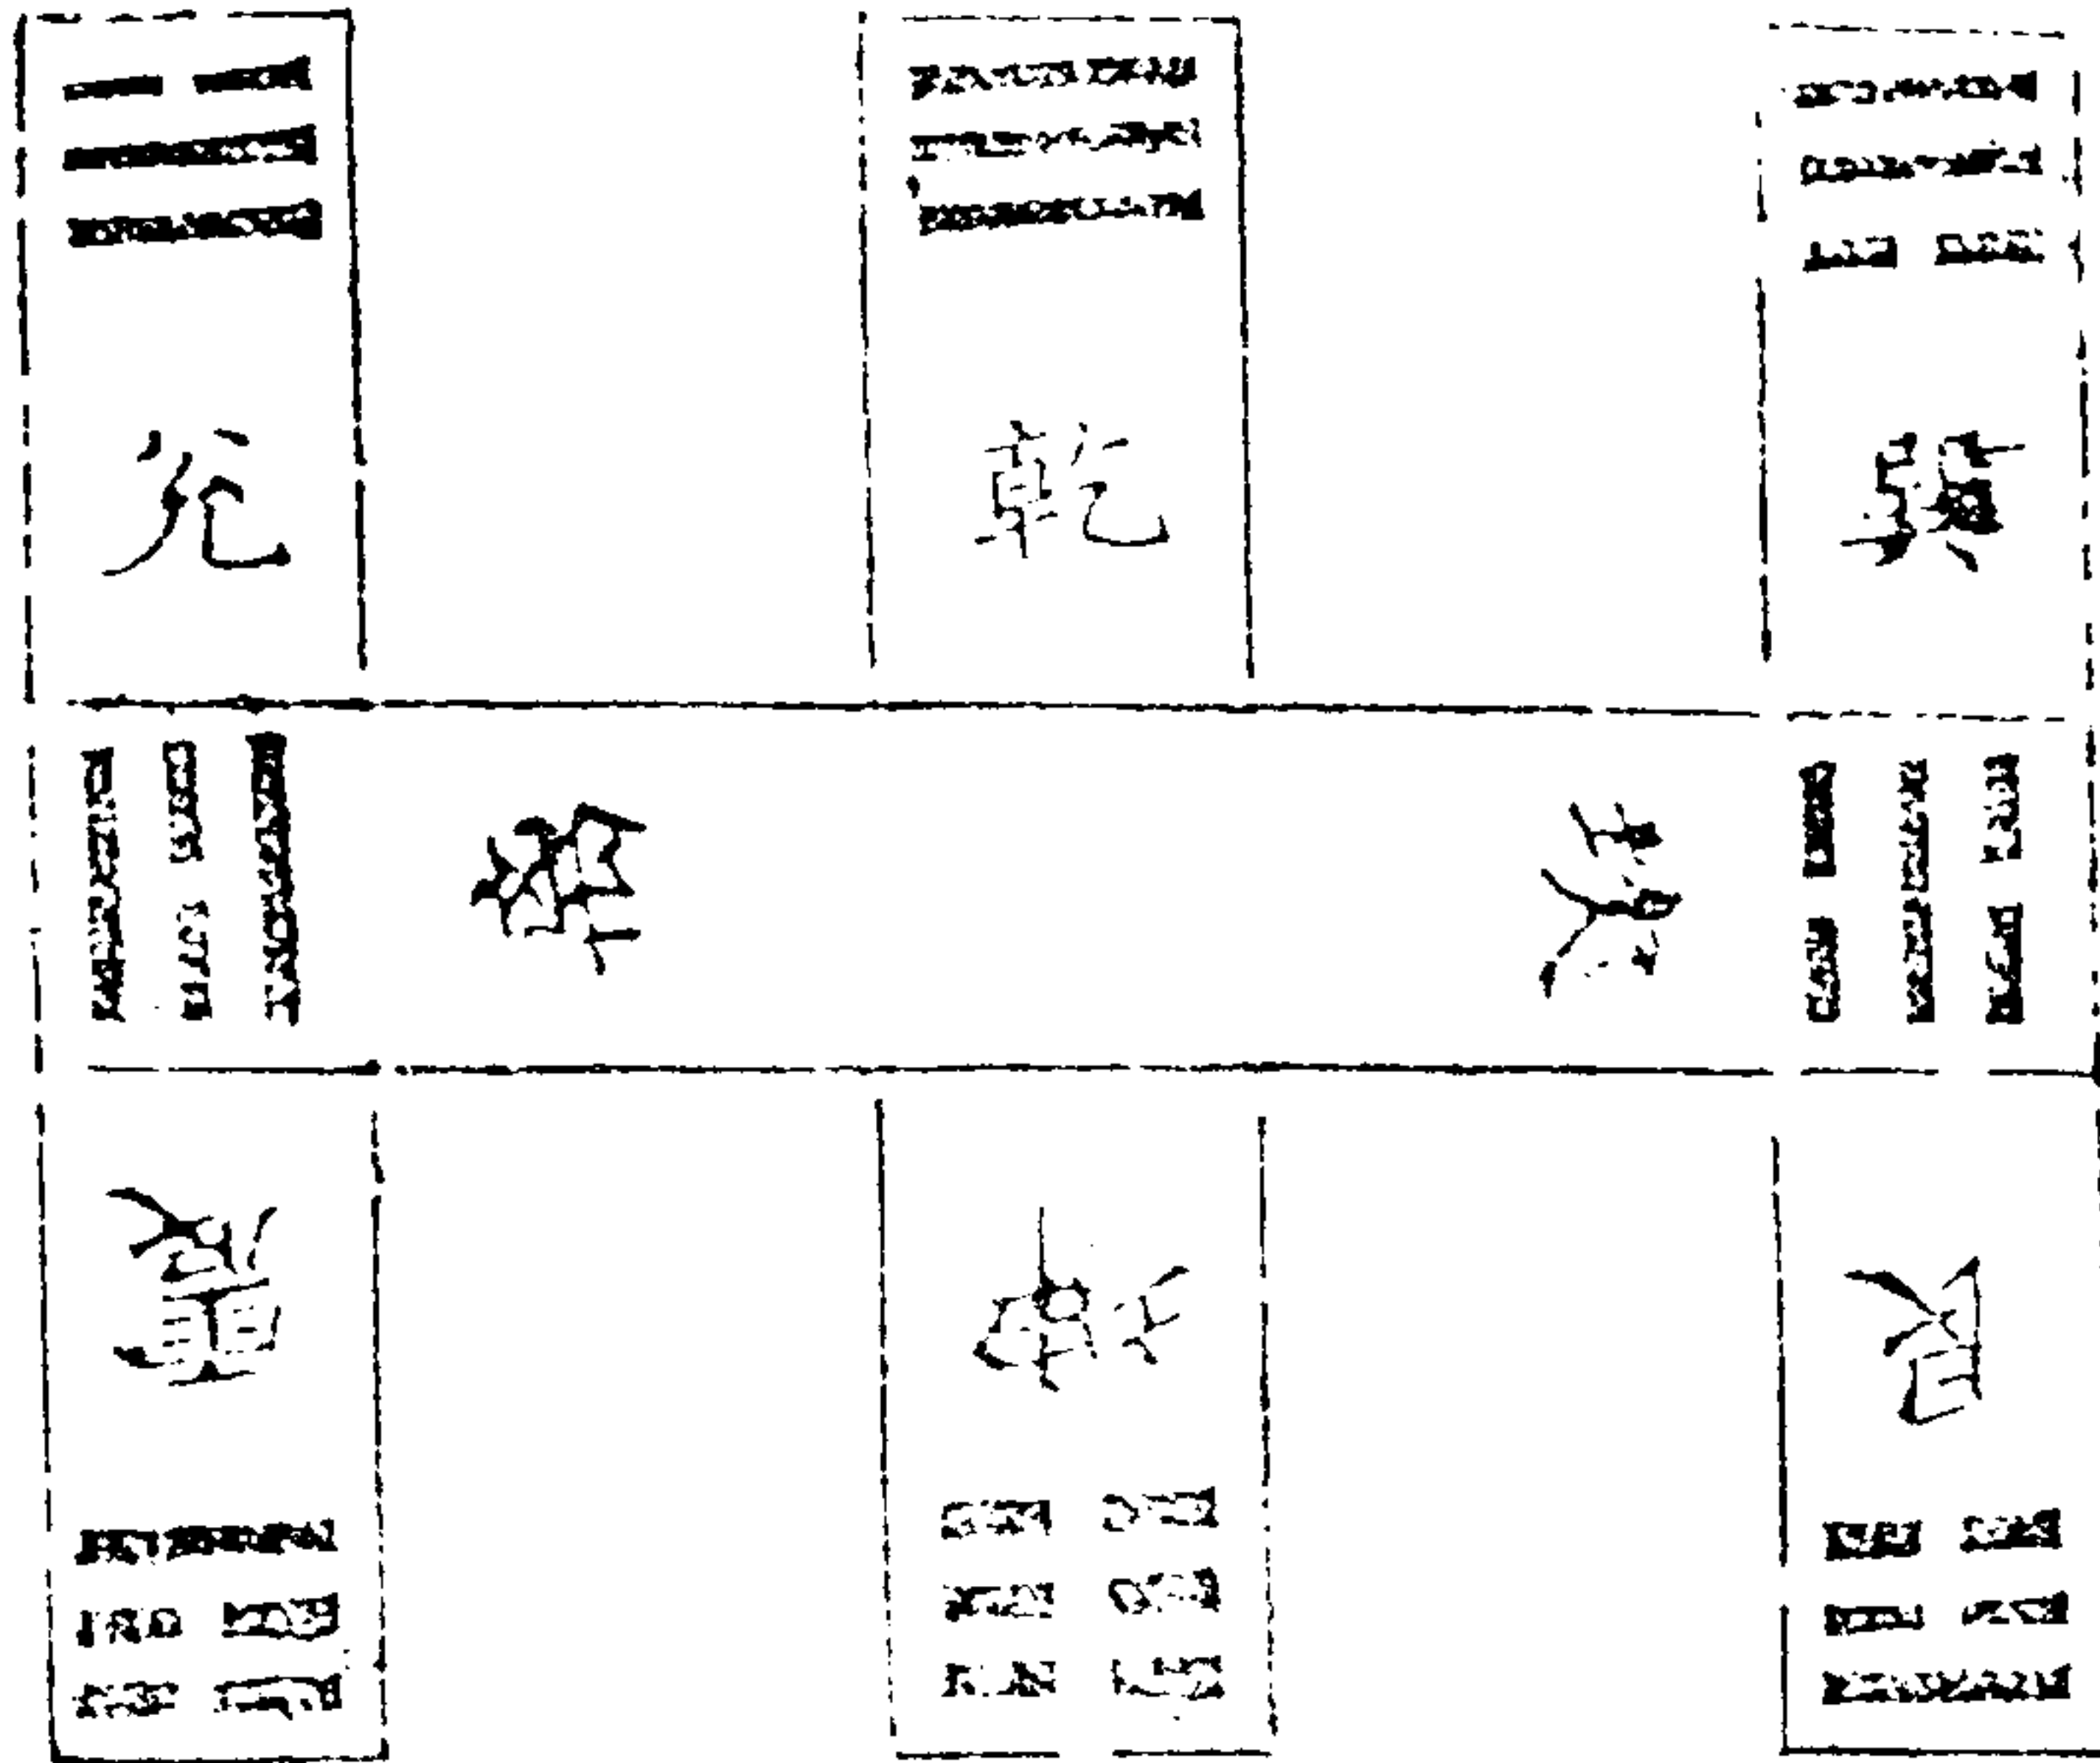 兌
乾
巽
離
坎
震
坤
艮